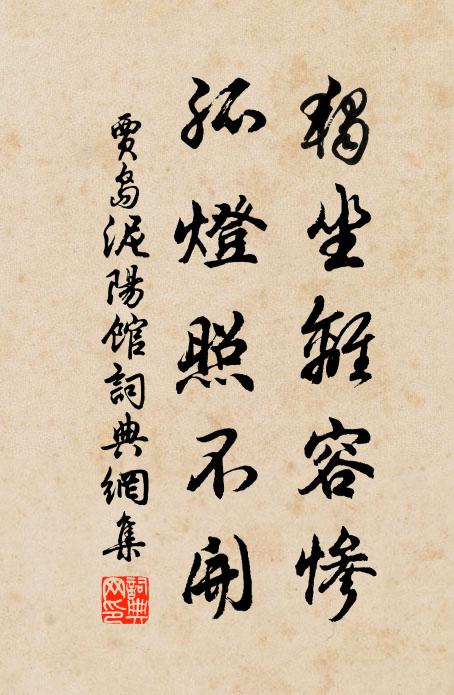 獨坐離容慘
孤燈照不開
賈島泥陽館詞典網集
詞典網印